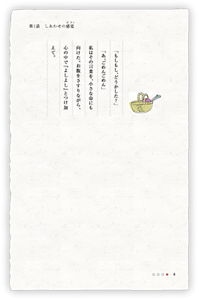 第1話　しあわせの感度
「もしもし、どうかした？」
「あ、ごめんごめん」
私はその言葉を、小さな命にも
向けた。お腹をさすりながら、
心の中で「よしよし」とつけ加
えて。
4